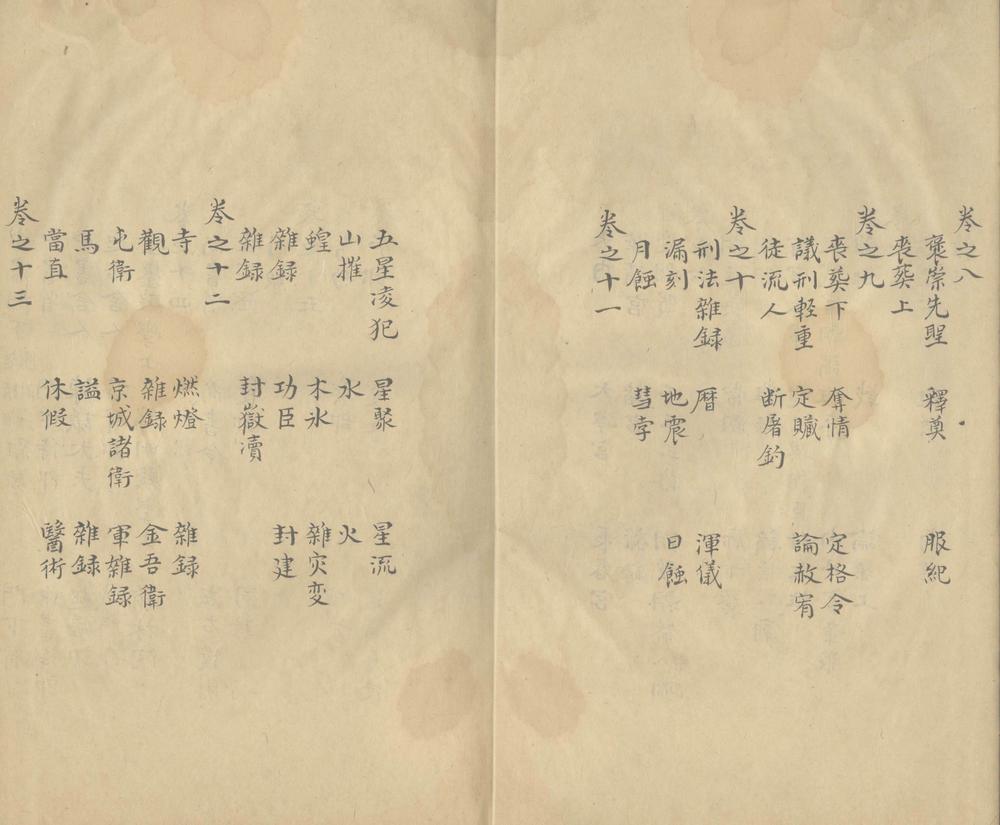 卷之八
褒崇先聖 釋奠 服紀
喪葬上
卷之九
喪葬下 奪情 定格令
議刑輕重 定贓 論赦宥
徒流人 断屠釣
卷之十
刑法雜録 暦 渾儀
漏刻 地震 日蝕
月蝕 彗孛
卷之十一
五星凌犯 星聚 星流
山摧 水 火
蝗 木氷 雜灾変
雜録 功臣 封建
雜録 封嶽瀆
卷之十二
寺 燃燈 雜録
觀 雜録 金吾衛
屯衛 京城諸衛 軍雜録
馬 諡 雜録
當直 休假 醫術
卷之十三